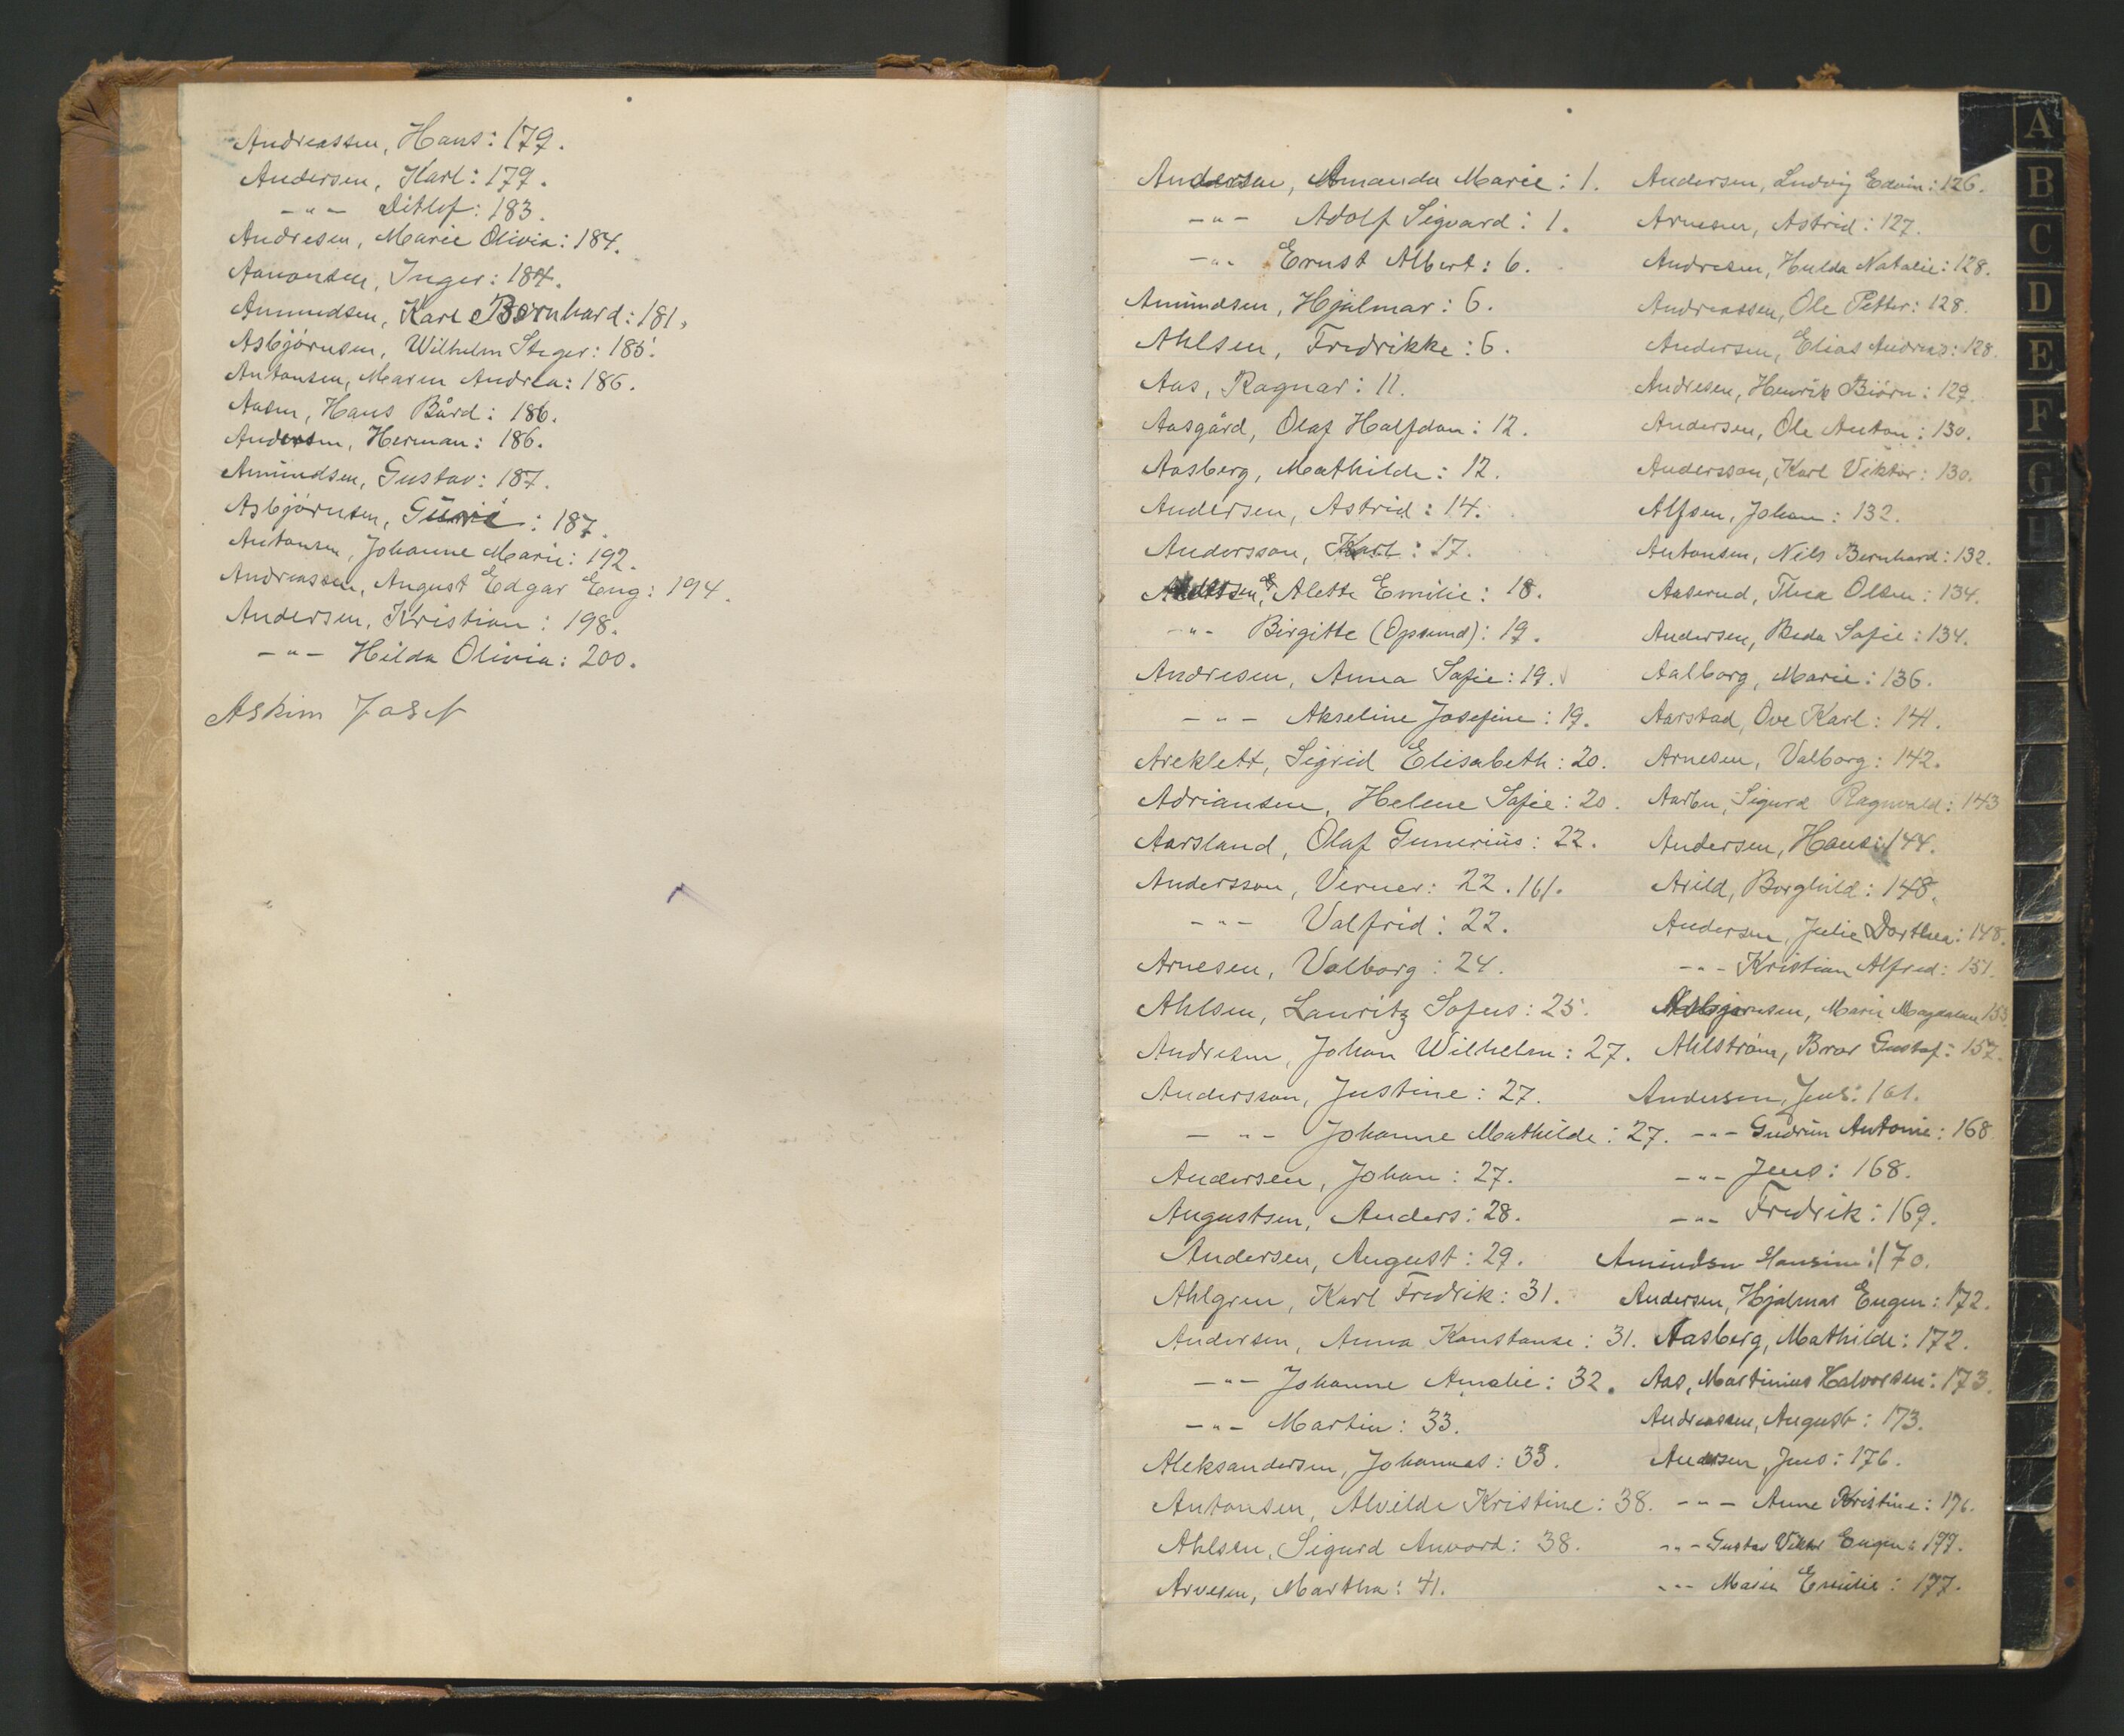 Andreassen, Hans: 179.
Andersen, Karl: 179.
-"- Ditlef: 183.
Andresen, Marie Olivia: 184.
Aanonsen, Inger: 184.
Amundsen, Karl Bernhard: 181.
Asbjørnsen, Wilhelm Steger: 185.
Antonsen, Maren Andrea: 186.
Aasen, Hans Bård: 186.
Andersen, Herman: 186.
Amundsen, Gustav: 187.
Asbjørnsen, : 187.
Antonsen, Johanne Marie: 192.
Andreassen, August Edgar Eng: 194.
Andersen, Kristian: 198.
-"- Hilda Olivia: 200.
Askim Josef
Andersen, Amanda Marie: 1.
-"- Adolf Sigvard: 1.
-"- Ernst Albert: 6.
Amundsen, Hjalmar: 6.
Ahlsen, Fredrikke: 6.
Aas, Ragnar: 11.
Aasgård, Olaf Halfdan: 12.
Aasberg, Mathilde: 12.
Andersen, Astrid: 14.
Andersson, Karl: 17.
Alette Emilie: 18.
-"- Birgitte (Opsund): 19.
Andresen, Anna Sofie: 19.
-"- Akseline Josefine: 19.
Areklett, Sigrid Elisabeth: 20.
Adriansen, Helene Sofie: 20.
Aarsland, Olaf Gunerius: 22.
Andersson, Verner: 22. 161.
-"- Valfrid: 22.
Arnesen, Valborg: 24.
Ahlsen, Lauritz Sofus: 25.
Andresen, Johan Wilhelm: 27.
Andersson, Justine: 27.
-"- Johanne Mathilde: 27.
Andersen, Johan: 27.
Augustsen, Anders: 28.
Andersen, August: 29.
Ahlgren, Karl Fredrik: 31.
Andersen, Anna Konstanse: 31.
-"- Johanne Amalie: 32.
-"- Martin: 33.
Aleksandersen, Johannes: 33.
Antonsen, Alvilde Kristine: 38.
Ahlsen, Sigurd Anvord: 38.
Arvesen, Martha: 41.
Andersen, Ludvig Edvin: 126.
Arnesen, Astrid: 127.
Andresen, Hulda Natalie: 128.
Andreassen, Ole Petter: 128.
Andersen, Elias Andreas: 128.
Andresen, Henrik Biörn: 129.
Andersen, Ole Anton: 130.
Andersson, Karl Viktor: 130.
Alfsen, Johan: 132.
Antonsen, Nils Bernhard: 132.
Aaserud, Thea Olsen: 134.
Andersen, Beda Sofie: 134.
Aalborg, Marie: 136.
Aarstad, Ove Karl: 141.
Arnesen, Valborg: 142.
Sigurd Ragnvald: 143
Andersen, Hans: 144.
Arild, Borghild: 148.
Andersen, Julie Dorthea: 148.
-"- Kristian Alfred: 151.
Marie Magdalene 153
Ahlström, Bror Gustaf: 157.
Andersen, Jens: 161.
-"- Gudrun Antonie: 168
-"- Jens: 168.
-"- Fredrik: 169.
Amundsen Hansine: 170.
Andersen, Hjalmar Eugen: 172.
Aasberg, Mathilde: 172.
Aas, Martinius Halvorsen: 173.
Andreassen, August: 173.
Andersen, Jens: 176.
-"- Anne Kristine: 176.
-"- Gustav Viktor Eugen: 177.
-"- Marie Emilie: 177.
A
B
C
D
E
F
G
H